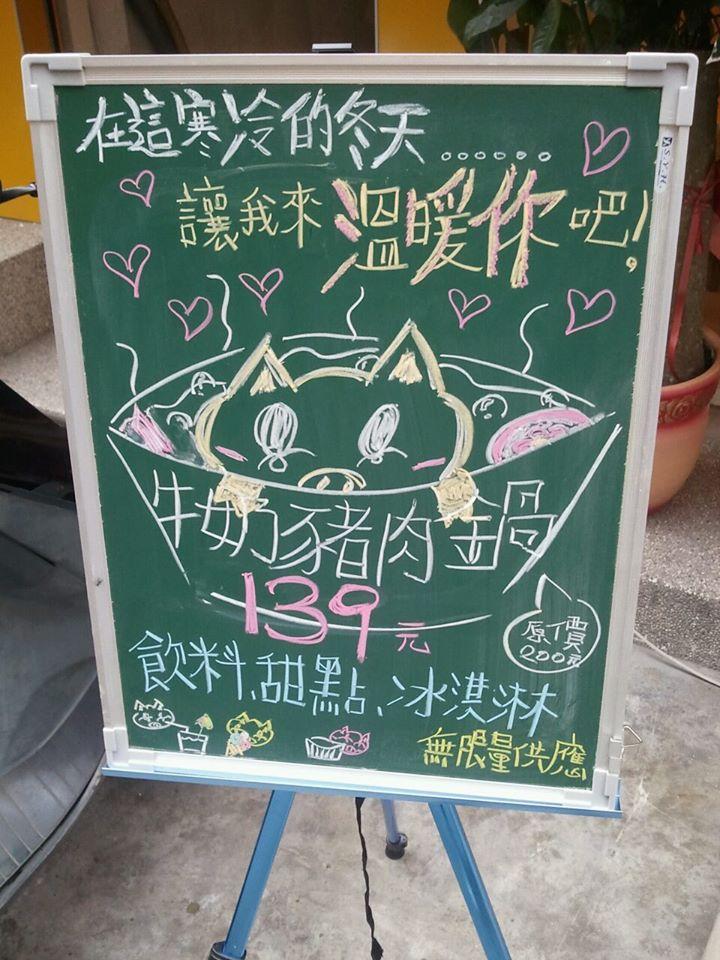 在這寒冷的冬天......
讓我來溫暖你吧!
牛奶豬肉鍋
139元
原價
200元
飲料、甜點、冰淇淋
無限量供應